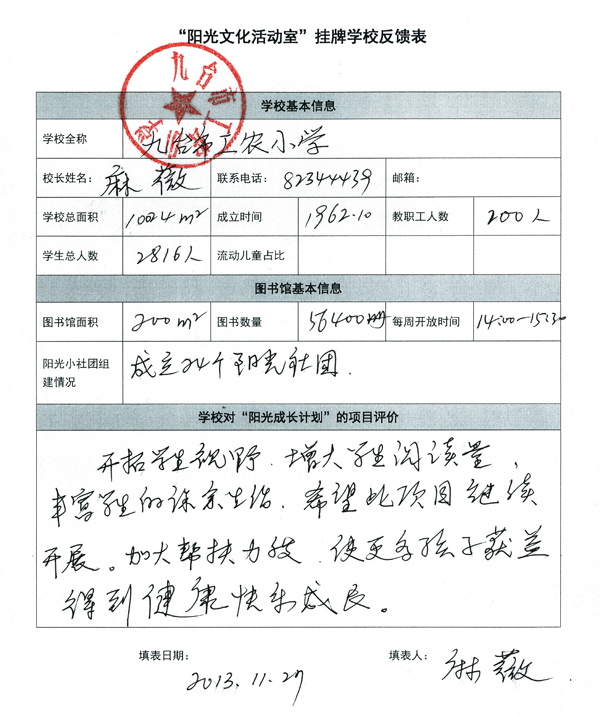 “阳光文化活动室”挂牌学校反馈表
学校基本信息
学校全称 九台市工农小学
校长姓名： 麻薇 联系电话： 82344439 邮箱：
学校总面积 1024m² 成立时间 1962.10 教职工人数 200人
学生总人数 2816人 流动儿童占比
图书馆基本信息
图书馆面积 200m² 图书数量 56400册 每周开放时间 14:00—15:30
阳光小社团组 成立24个阳光社团.
建情况
学校对“阳光成长计划”的项目评价
开拓学生视野、增大学生阅读量、
丰富学生的课余生活、希望此项目继续
开展。加大帮扶力度、使更多孩子获益
得到健康快乐成长。
填表日期： 填表人：
2013.11.27 麻薇